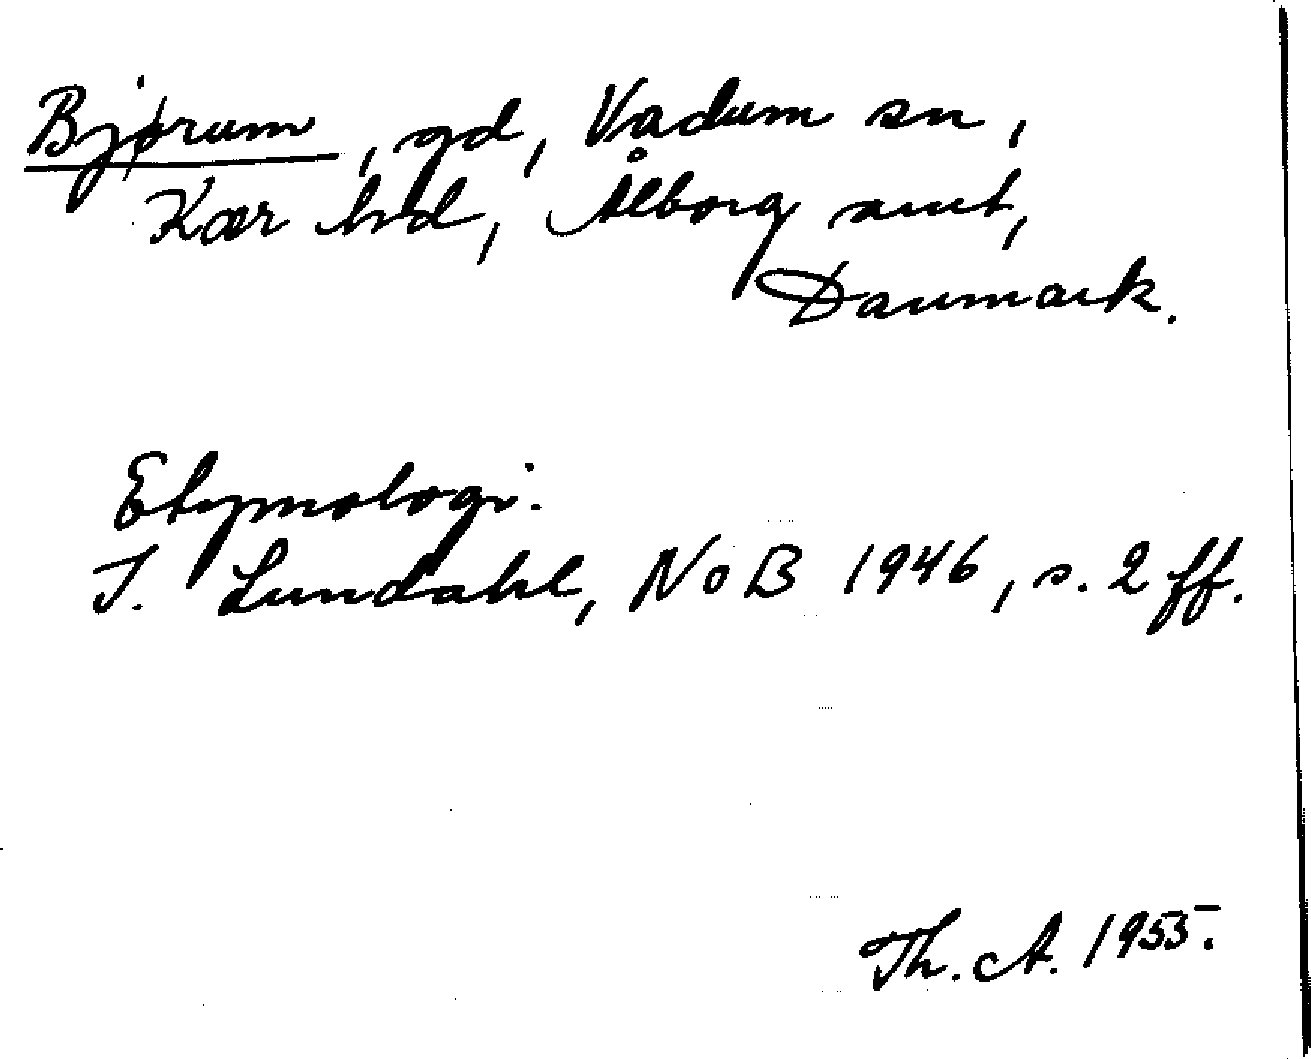 Bjørum, gd, Vadum sn,
Kær hd, Ålborg amt,
Danmark.
Etymologi.
I. Lundahl, NoB 1946, s. 2 ff.
Th. A. 1955.